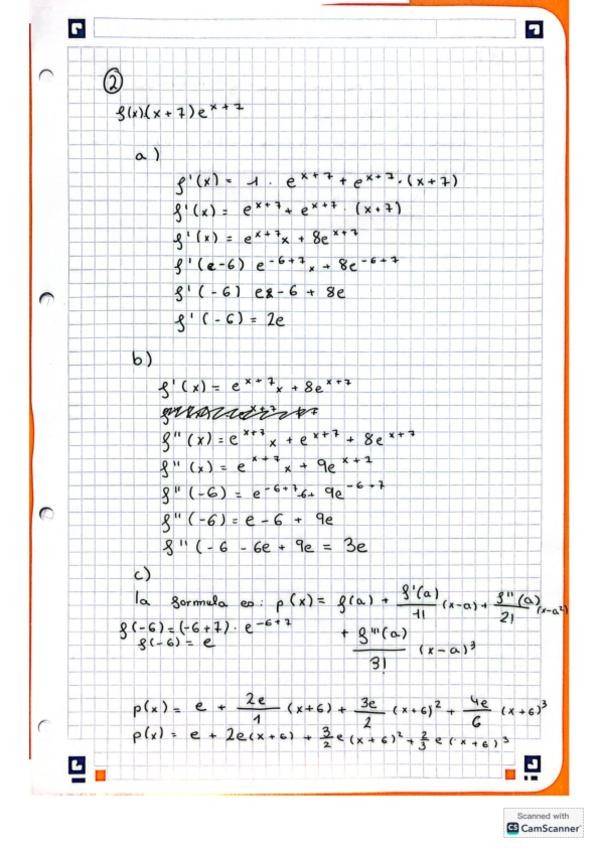 ②
f(x)(x+7)e^x+7
a)
f'(x) = 1 · e^x+7 + e^x+7 · (x+7)
f'(x) = e^x+7 + e^x+7 · (x+7)
f'(x) = e^x+7 x + 8e^x+7
f'(-6) e^-6+7 x + 8e^-6+7
f'(-6) e -6 + 8e
f'(-6) = 2e
b)
f'(x) = e^x+7 x + 8e^x+7
f''(x) = e^x+7 x + e^x+7 + 8e^x+7
f''(x) = e^x+7 x + 9e^x+7
f''(-6) = e^-6+7 -6 + 9e^-6+7
f''(-6) = e -6 + 9e
f''(-6 -6e + 9e = 3e
c)
la formula es: p(x) = f(a) + f'(a)/1! (x-a) + f''(a)/2! (x-a²)
+ f'''(a)/3! (x-a)³
f(-6) = (-6+7) · e^-6+7
f(-6) = e
p(x) = e + 2e/1 (x+6) + 3e/2 (x+6)² + 4e/6 (x+6)³
p(x) = e + 2e(x+6) + 3/2 e(x+6)² + 2/3 e(x+6)³
Scanned with
CS CamScanner